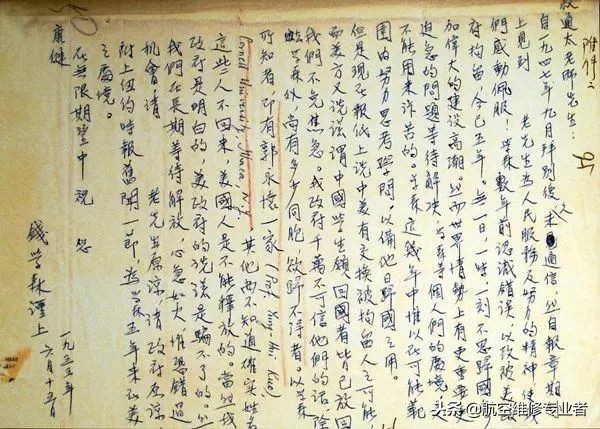 附件二
叔通太老師先生：
自一九四七年九月拜別後久未通信，然自報章期
上見到 老先生為人民服務及努力的精神，使我
們感動佩服！學森數年前認識錯誤，以致被美政
府拘留，今已五年。無一日、一時、一刻不思歸國參
加偉大的建設高潮。然而世界情勢上有更重要更
迫急的問題等待解決，學森等個人們的處境是
不能用來訴苦的。學森這幾年中唯以在可能範
圍內努力思考學問，以備他日歸國之用。
但是現在報紙上說中美有交換被拘留人之可能，
而美方又說謊謂中國學生願回國者皆已放回
我們不免焦急。我政府千萬不可信他們的話，除
學森外，尚有多少同胞，欲歸不得者。以學森
所知者，即有郭永懷一家（Prof. Yung-Huai Kuo,
Cornell University, Ithaca, N.Y.）其他尚不知道確實姓名
這些人不回來，美國人是不能釋放的。當然我
政府是明白的，美政府的說謊是騙不了的。然
我們在長期等待解放，心急如火，惟恐錯過
機會，請 老先生原諒，請政府原諒
附上紐約時報舊聞一節，為學森五年來在美
之處境。
在無限期望中祝 您
康健
錢學森謹上
一九五五年
六月十五日
头条@航空维修专业者